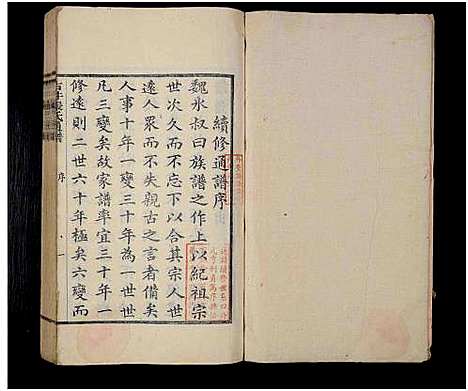 續修通譜序
魏氷叔曰族譜之作上以紀祖宗
世次久而不忘下以合其宗人世
遠人眾而不失親古之言者備矣
人事十年一變三十年為一世世
凡三變矣故家譜率宜三十年一
修遠則二世六十年極矣六變而
序
一